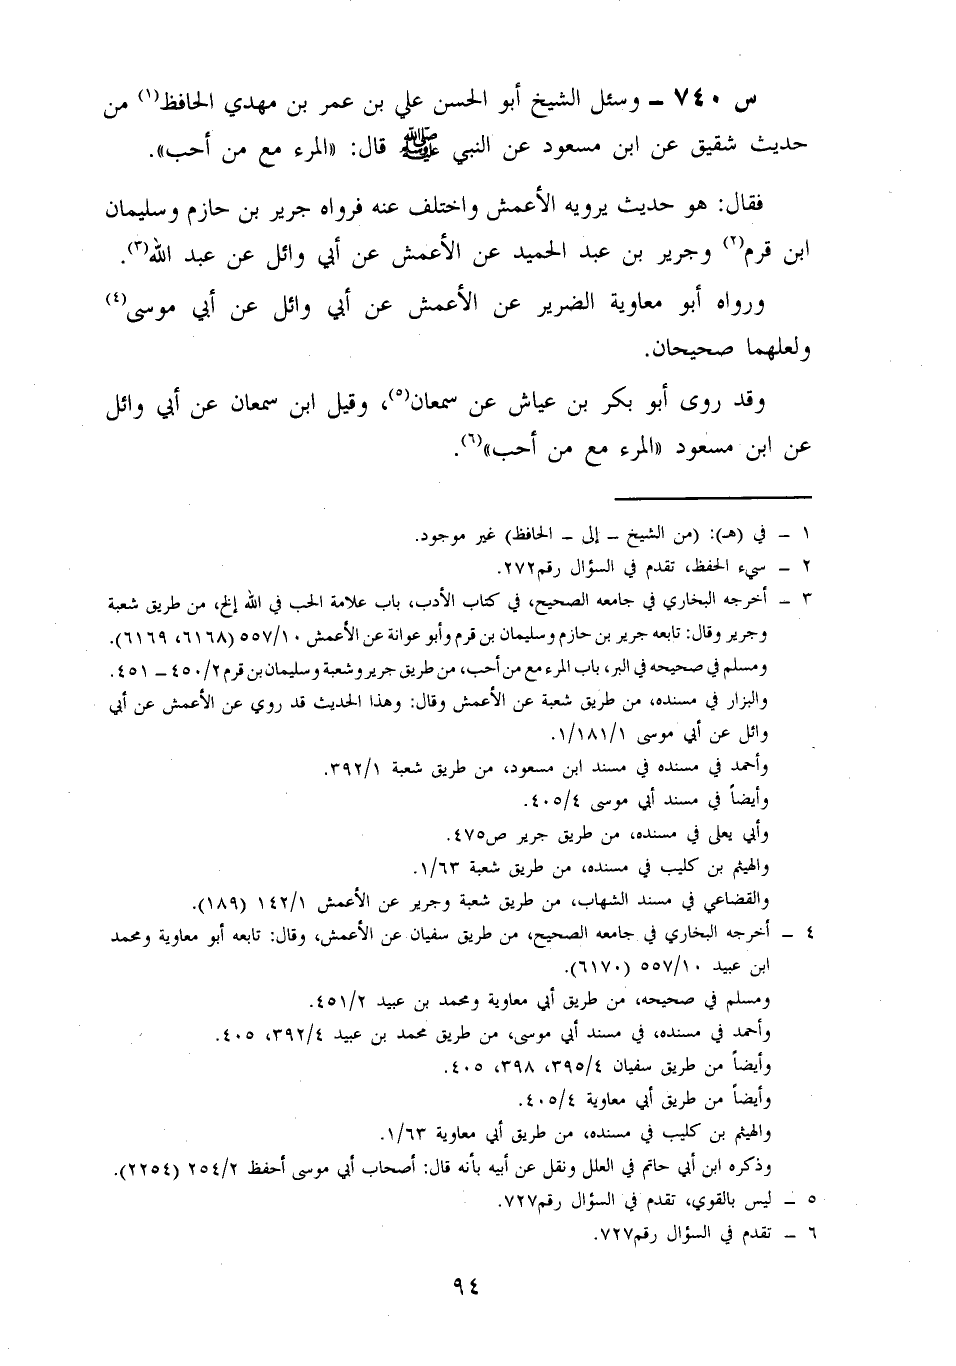 س ٧٤٠ – وسئل الشيخ أبو الحسن علي بن عمر بن مهدي الحافظ(١) من
حديث شقيق عن ابن مسعود عن النبي ﷺ قال: «المرء مع من أحب».
فقال: هو حديث يرويه الأعمش واختلف عنه فرواه جرير بن حازم وسليمان
ابن قرم(٢) وجرير بن عبد الحميد عن الأعمش عن أبي وائل عن عبد الله(٣).
ورواه أبو معاوية الضرير عن الأعمش عن أبي وائل عن أبي موسى(٤)
ولعلهما صحيحان.
وقد روى أبو بكر بن عياش عن سمعان(٥)، وقيل ابن سمعان عن أبي وائل
عن ابن مسعود «المرء مع من أحب»(٦).
١ – في (هـ): (من الشيخ – إلى – الحافظ) غير موجود.
٢ – سيء الحفظ، تقدم في السؤال رقم٢٧٢.
٣ – أخرجه البخاري في جامعه الصحيح، في كتاب الأدب، باب علامة الحب في الله إلخ، من طريق شعبة
وجرير وقال: تابعه جرير بن حازم وسليمان بن قرم وأبو عوانة عن الأعمش ٥٥٧/١٠ (٦١٦٨، ٦١٦٩).
ومسلم في صحيحه في البر، باب المرء مع من أحب، من طريق جرير وشعبة وسليمان بن قرم ٤٥٠/٢ – ٤٥١.
والبزار في مسنده، من طريق شعبة عن الأعمش وقال: وهذا الحديث قد روي عن الأعمش عن أبي
وائل عن أبي موسى ١/١٨١/١.
وأحمد في مسنده في مسند ابن مسعود، من طريق شعبة ٣٩٢/١.
وأيضاً في مسند أبي موسى ٤٠٥/٤.
وأبي يعلى في مسنده، من طريق جرير ص٤٧٥.
والهيثم بن كليب في مسنده، من طريق شعبة ١/٦٣.
والقضاعي في مسند الشهاب، من طريق شعبة وجرير عن الأعمش ١٤٢/١ (١٨٩).
٤ – أخرجه البخاري في جامعه الصحيح، من طريق سفيان عن الأعمش، وقال: تابعه أبو معاوية ومحمد
ابن عبيد ٥٥٧/١٠ (٦١٧٠).
ومسلم في صحيحه، من طريق أبي معاوية ومحمد بن عبيد ٤٥١/٢.
وأحمد في مسنده، في مسند أبي موسى، من طريق محمد بن عبيد ٣٩٢/٤، ٤٠٥.
وأيضاً من طريق سفيان ٣٩٥/٤، ٣٩٨، ٤٠٥.
وأيضاً من طريق أبي معاوية ٤٠٥/٤.
والهيثم بن كليب في مسنده، من طريق أبي معاوية ١/٦٣.
وذكره ابن أبي حاتم في العلل ونقل عن أبيه بأنه قال: أصحاب أبي موسى أحفظ ٢٥٤/٢ (٢٢٥٤).
٥ – ليس بالقوي، تقدم في السؤال رقم٧٢٧.
٦ – تقدم في السؤال رقم٧٢٧.
٩٤